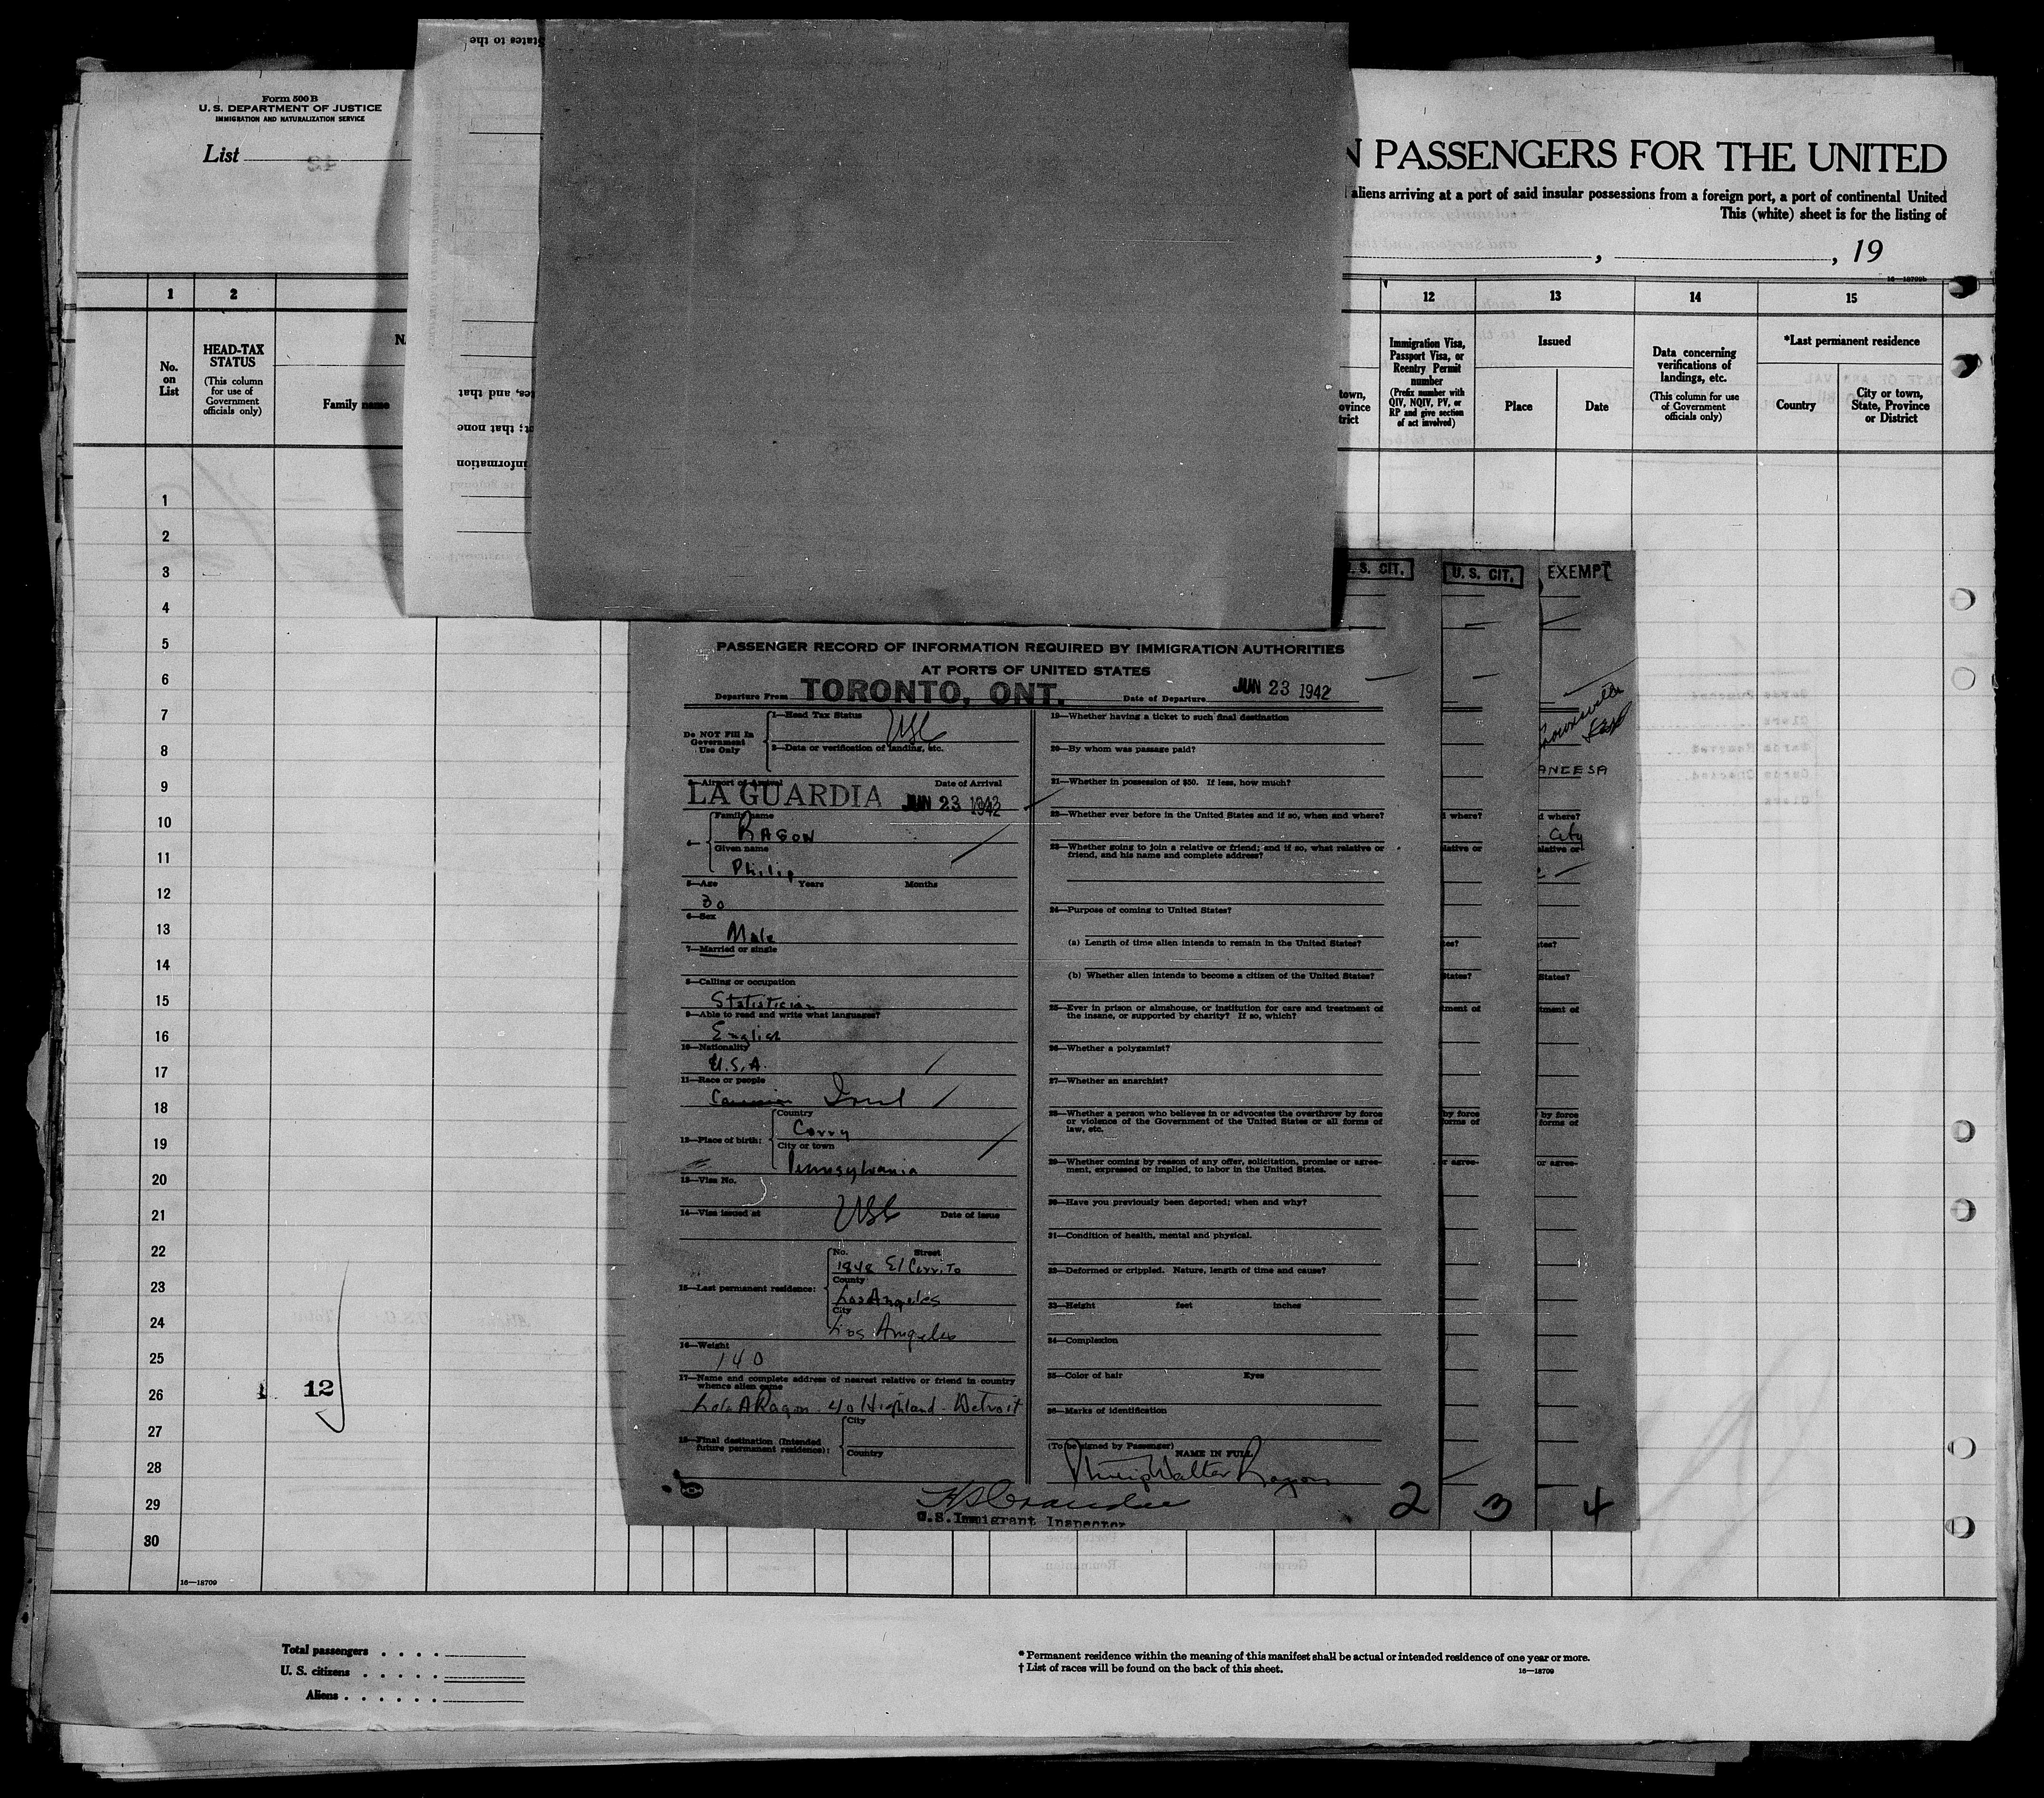 Form 500 B
U. S. DEPARTMENT OF JUSTICE
IMMIGRATION AND NATURALIZATION SERVICE
List
States to the
N PASSENGERS FOR THE UNITED
aliens arriving at a port of said insular possessions from a foreign port, a port of continental United
This (white) sheet is for the listing of
, , 19
16—18709b
1 2 12 13 14 15
No. on List
HEAD-TAX STATUS
(This column for use of Government officials only)
Family name
Immigration Visa, Passport Visa, or Reentry Permit number
(Prefix number with QIV, NQIV, PV, or RP and give section of act involved)
Issued
Place
Date
Data concerning verifications of landings, etc.
(This column for use of Government officials only)
*Last permanent residence
Country
City or town, State, Province or District
and that
that none
information
1
2
3
4
5
6
7
8
9
10
11
12
13
14
15
16
17
18
19
20
21
22
23
24
25
26
27
28
29
30
12
16—18709
U. S. CIT.
U. S. CIT.
EXEMPT
PASSENGER RECORD OF INFORMATION REQUIRED BY IMMIGRATION AUTHORITIES
AT PORTS OF UNITED STATES
Departure From TORONTO, ONT. Date of Departure JUN 23 1942
Do NOT Fill In Government Use Only
1—Head Tax Status USC
2—Data or verification of landing, etc.
3—Airport of Arrival Date of Arrival
LA GUARDIA JUN 23 1942
4— Family name
RAGON
Given name
Philip
5—Age Years Months
30
6—Sex
Male
7—Married or single
8—Calling or occupation
Statistician
9—Able to read and write what languages?
English
10—Nationality
U.S.A.
11—Race or people
12—Place of birth: Country
Corry
City or town
Pennsylvania
13—Visa No.
14—Visa issued at USC Date of Issue
15—Last permanent residence: No. Street
1848 El Cerrito
County
Los Angeles
City
Los Angeles
16—Weight
140
17—Name and complete address of nearest relative or friend in country whence alien came
A Ragon - 40 Highland - Detroit
18—Final destination (Intended future permanent residence): City
Country
19—Whether having a ticket to such final destination
20—By whom was passage paid?
21—Whether in possession of $50. If less, how much?
22—Whether ever before in the United States and if so, when and where?
23—Whether going to join a relative or friend; and if so, what relative or
friend, and his name and complete address?
24—Purpose of coming to United States?
(a) Length of time alien intends to remain in the United States?
(b) Whether alien intends to become a citizen of the United States?
25—Ever in prison or almshouse, or institution for care and treatment of
the insane, or supported by charity? If so, which?
26—Whether a polygamist?
27—Whether an anarchist?
28—Whether a person who believes in or advocates the overthrow by force
or violence of the Government of the United States or all forms of
law, etc.
29—Whether coming by reason of any offer, solicitation, promise or agree-
ment, expressed or implied, to labor in the United States.
30—Have you previously been deported; when and why?
31—Condition of health, mental and physical.
32—Deformed or crippled. Nature, length of time and cause?
33—Height feet inches
34—Complexion
35—Color of hair Eyes
36—Marks of identification
(To be signed by Passenger) NAME IN FULL
Philip Walter Ragon
U.S. Immigrant Inspector
2 3 4
Total passengers
U. S. citizens
Aliens
* Permanent residence within the meaning of this manifest shall be actual or intended residence of one year or more.
† List of races will be found on the back of this sheet.
16—18709